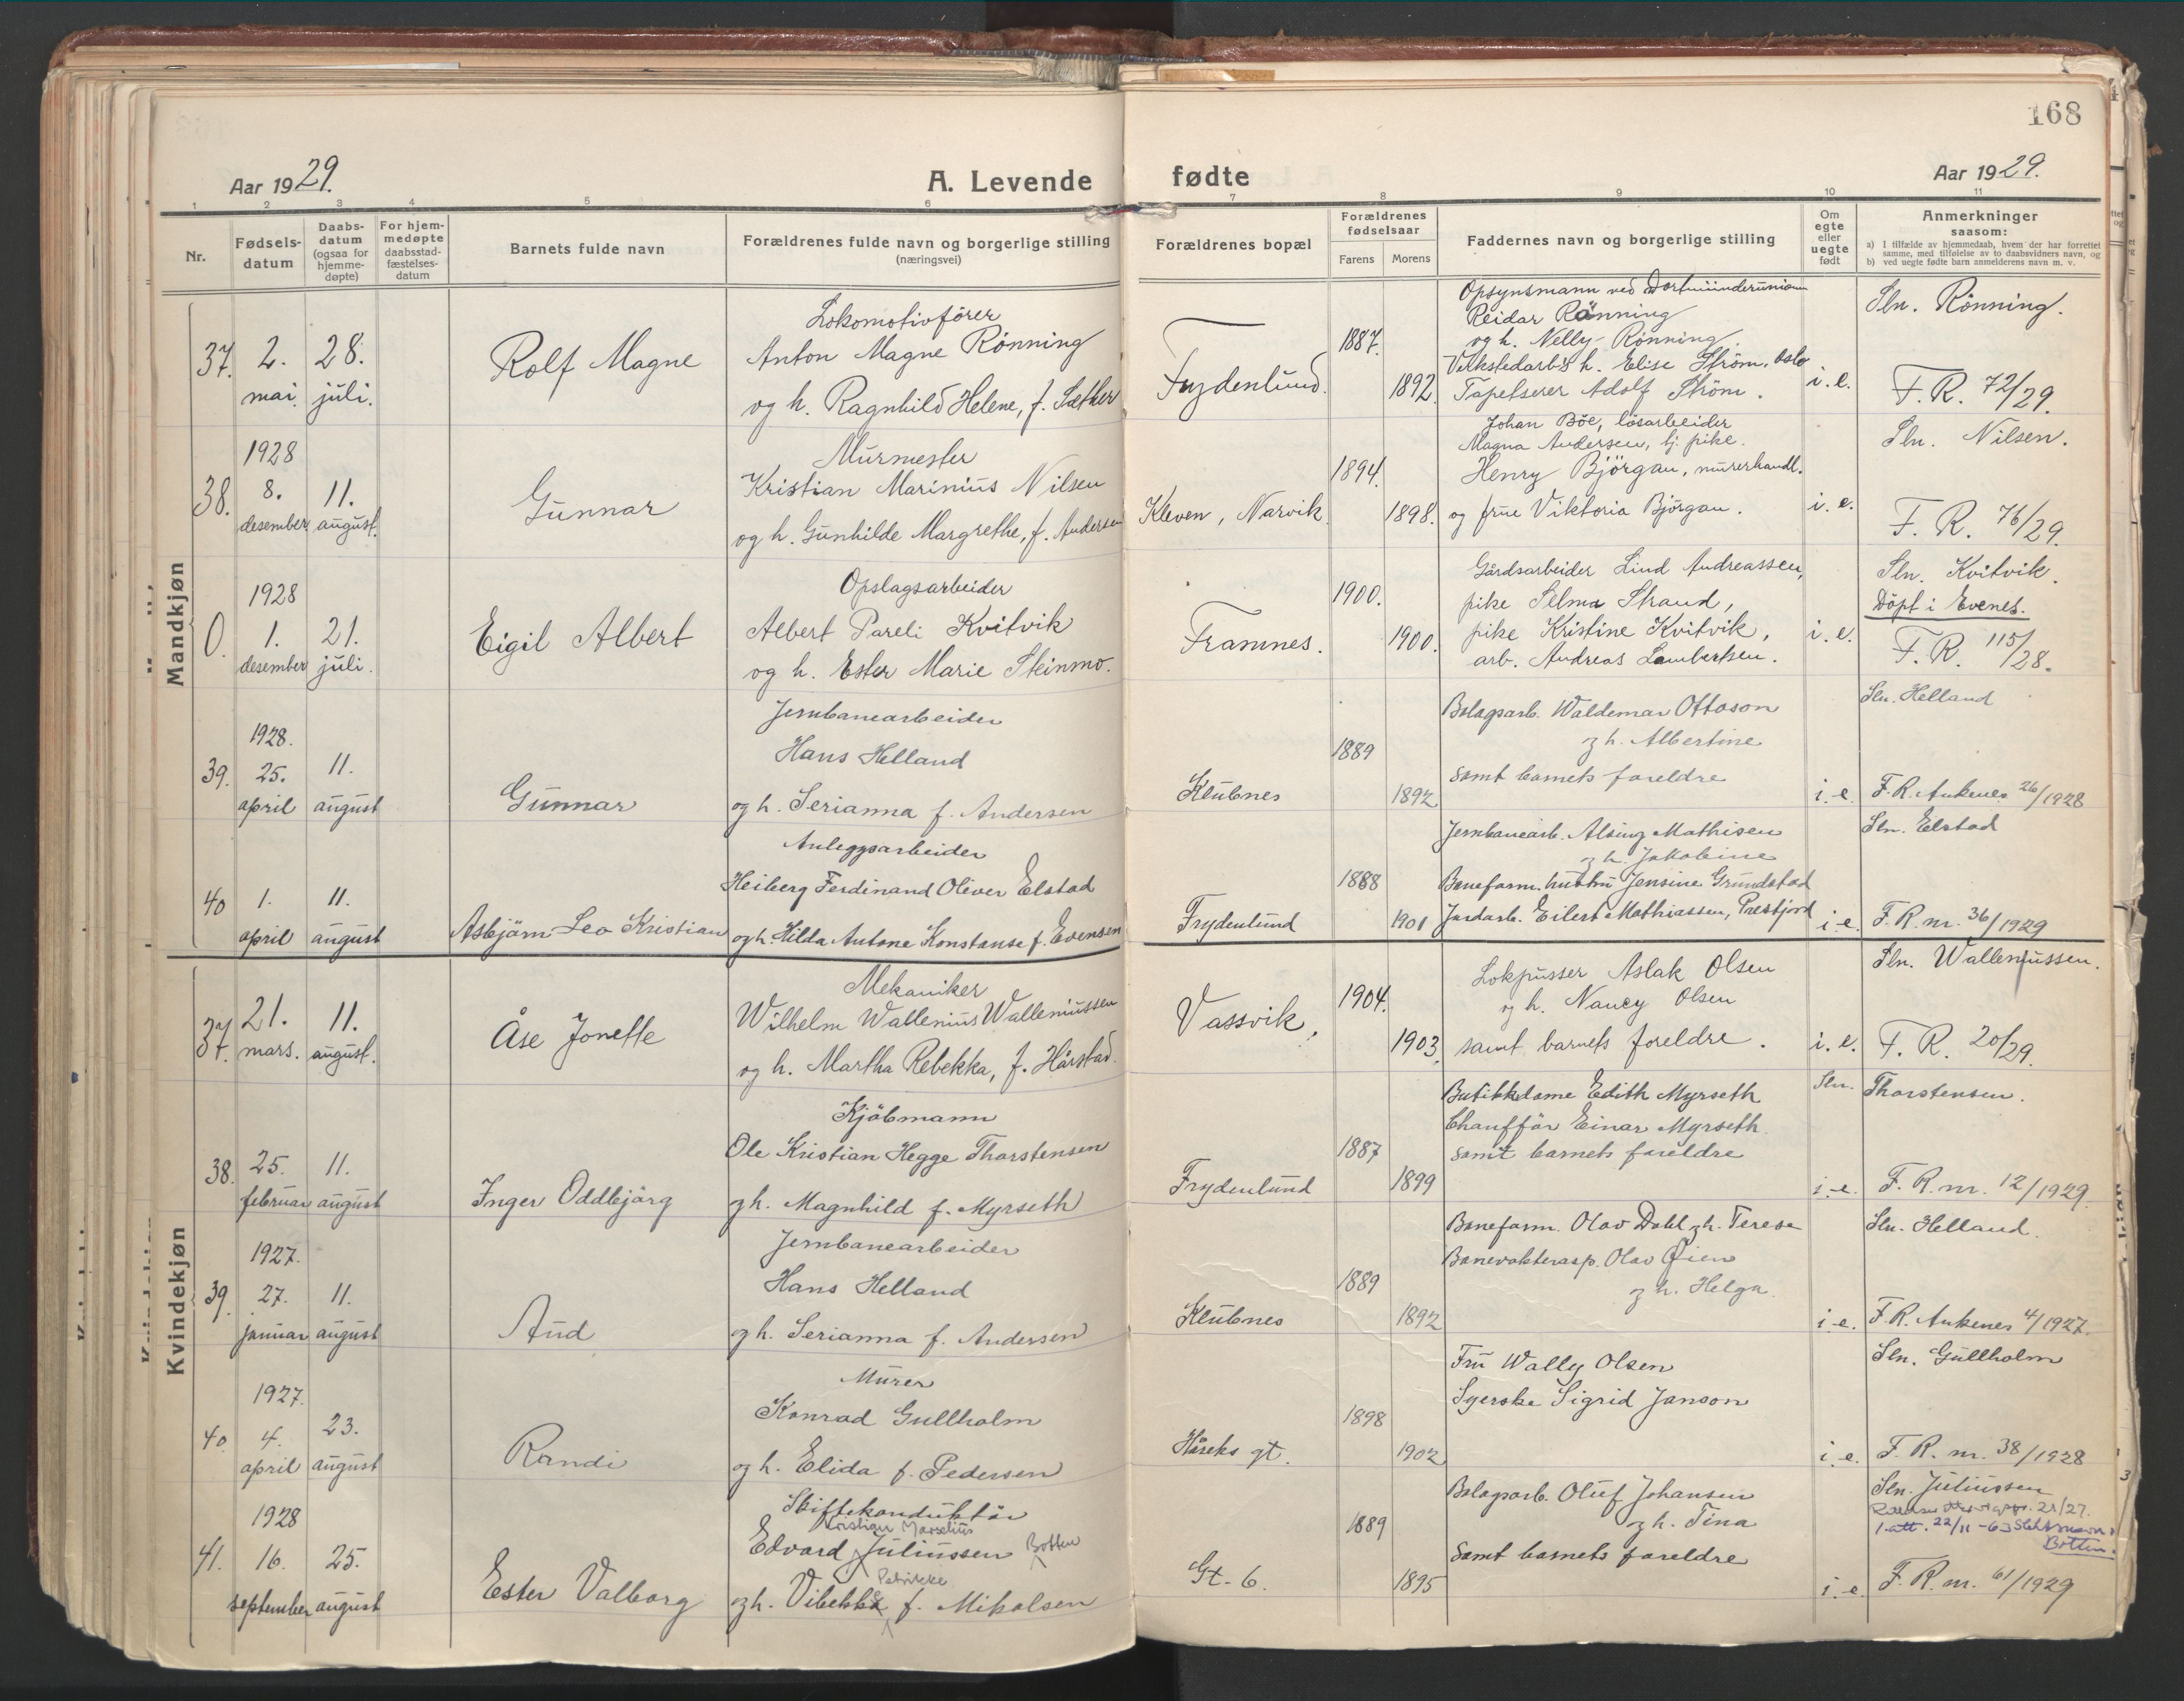 168
Aar 1929.
A. Levende fødte
Aar 1929.
1 2 3 4 5 6 7 8 9 10 11
Nr.
Fødsels-
datum
Daabs-
datum
(ogsaa for
hjemme-
døpte)
For hjem-
medøpte
daabsstad-
fæstelses-
datum
Barnets fulde navn
Forældrenes fulde navn og borgerlige stilling
(næringsvei)
Forældrenes bopæl
Forældrenes
fødselsaar
Farens
Morens
Faddernes navn og borgerlige stilling
Om
egte
eller
uegte
født
Anmerkninger
saasom:
a) I tilfælde av hjemmedaab, hvem der har forrettet
samme, med tilføielse av to daabsvidners navn, og
b) ved uegte fødte barn anmelderens navn m. v.
Mandkjøn
37.
2.
mai.
28.
juli.
Rolf Magne
Lokomotivfører
Anton Magne Rönning
og h. Ragnhild Helene, f. Sæther
Frydenlund.
1887.
1892.
Opsynsmann ved Dortmünderunionen
Reidar Rönning
og h. Nelly Rönning.
Verkstedarb's h. Elise Ström, Oslo
Tapetserer Adolf Ström.
i. e.
Sln. Rönning.
F. R. 72/29.
38.
1928
8.
desember
11.
august.
Gunnar
Murmester
Kristian Marinius Nilsen
og h. Gunhilde Margrethe, f. Andersen
Kleven, Narvik.
1894.
1898.
Johan Böe, lösarbeider
Magna Andersen, hj. pike.
Henry Björgan, murerhandl.
og frue Viktoria Björgan.
i. e.
Sln. Nilsen.
F. R. 76/29.
0.
1928
1.
desember
21.
juli.
Eigil Albert
Opslagsarbeider
Albert Pareli Kvitvik
og h. Ester Marie Steinmo.
Framnes.
1900.
1900.
Gårdsarbeider Lind Andreassen,
pike Selma Strand,
pike Kristine Kvitvik,
arb. Andreas Lambertsen.
i. e.
Sln. Kvitvik.
Döpt i Evenes.
F. R. 115/28.
39.
1928.
25.
april
11.
august
Gunnar
Jernbanearbeider
Hans Helland
og h. Serianna f. Andersen
Klubnes
1889
1892
Bolagsarb. Waldemar Ottoson
og h. Albertine
samt barnets foreldre
i. e.
Sln. Helland
F. R. Ankenes 26/1928
40
1.
april
11.
august
Asbjörn Leo Kristian
Anleggsarbeider
Heiberg Ferdinand Oliver Elstad
og h. Hilda Antone Konstanse f. Evensen
Frydenlund
1888
1901
Jernbanearb. Alsing Mathisen
og h. Jakobine
Baneform. hustru Jensine Grundstad
Jordarb. Eilert Mathiassen, Prestjord
i. e.
Sln. Elstad
F. R. nr. 36/1929
Kvindekjøn
37.
21.
mars.
11.
august.
Åse Jonette
Mekaniker
Wilhelm Wallenius Walleniussen
og h. Martha Rebekka, f. Hårstad.
Vassvik.
1904.
1903.
Lokpusser Aslak Olsen
og h. Nancy Olsen
samt barnets foreldre.
i. e.
Sln. Walleniussen.
F. R. 20/29.
38.
25.
februar
11.
august
Inger Oddbjörg
Kjöbmann
Ole Kristian Hegge Thorstensen
og h. Magnhild f. Myrseth
Frydenlund
1887
1899
Butikkdame Edith Myrseth
Chaufför Einar Myrseth
samt barnets foreldre
i. e.
Sln. Thorstensen.
F. R. nr. 12/1929
39.
1927.
27.
januar
11.
august
Aud
Jernbanearbeider
Hans Helland
og h. Serianna f. Andersen
Klubnes
1889
1892
Baneform. Olav Dahl og h. Terese
Banevokterasp. Olav Øien
og h. Helga.
i. e.
Sln. Helland.
F. R. Ankenes 4/1927.
40
1927.
4.
april
23.
august
Randi
Murer
Konrad Gullholm
og h. Elida f. Pedersen
Håreks gt.
1898
1902
Fru Wally Olsen
Syerske Sigrid Janson
i. e.
Sln. Gullholm
F. R. nr. 38/1928
41.
1928
16.
september
25.
august
Ester Valborg
Skiftekonduktör
Kristian Marselius
Edvard Juliussen Botten
Petrikke
og h. Vibekke f. Mikalsen
Gt. 6.
1889
1895
Bolagsarb. Oluf Johansen
og h. Tina
samt barnets foreldre
i. e.
Sln. Juliussen
21/27.
1. att. 22/11-63 Slektsnavn
Botten.
F. R. nr. 61/1929